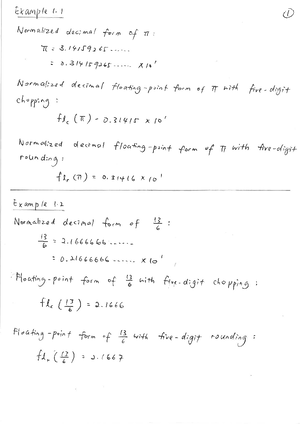 Example 1.1
①
Normalized decimal form of π :
π = 3.14159265 ......
= 0.314159265 ...... × 10¹
Normalized decimal floating-point form of π with five-digit
chopping :
fl_c (π) = 0.31415 × 10¹
Normalized decimal floating-point form of π with five-digit
rounding :
fl_r (π) = 0.31416 × 10¹
Example 1.2
Normalized decimal form of 13/6 :
13/6 = 2.1666666 ......
= 0.21666666 ...... × 10¹
Floating-point form of 13/6 with five-digit chopping :
fl_c (13/6) = 2.1666
Floating-point form of 13/6 with five-digit rounding :
fl_r (13/6) = 2.1667